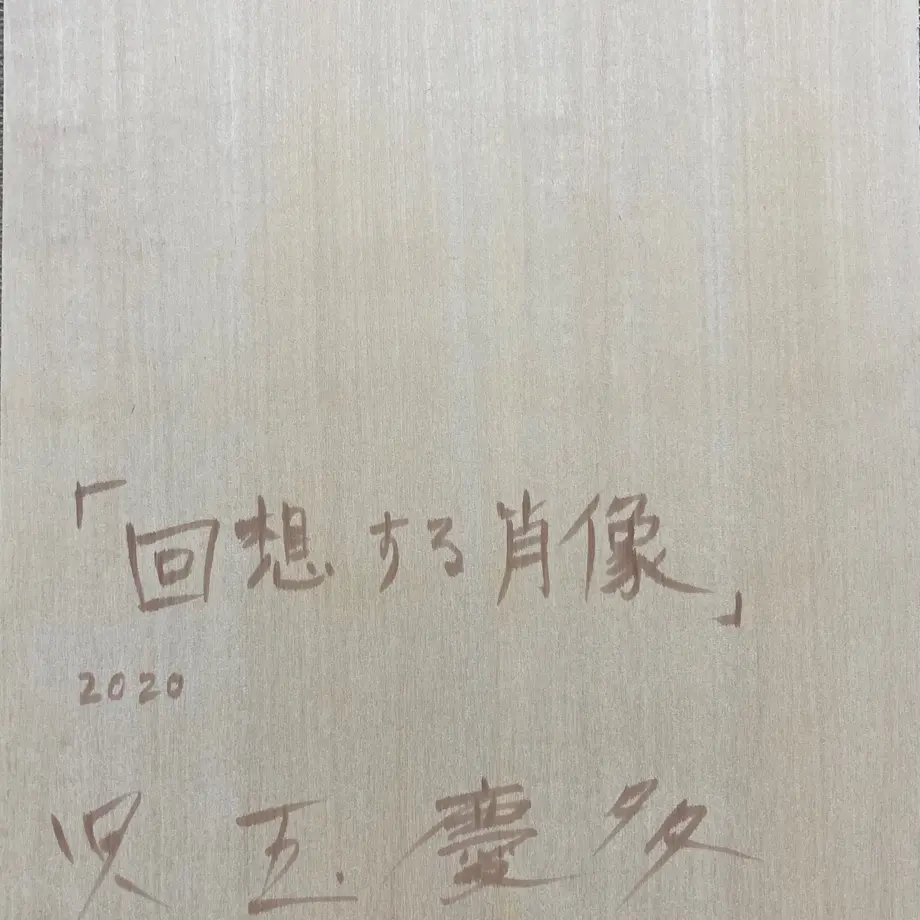 「回想する肖像」
2020
児玉慶多